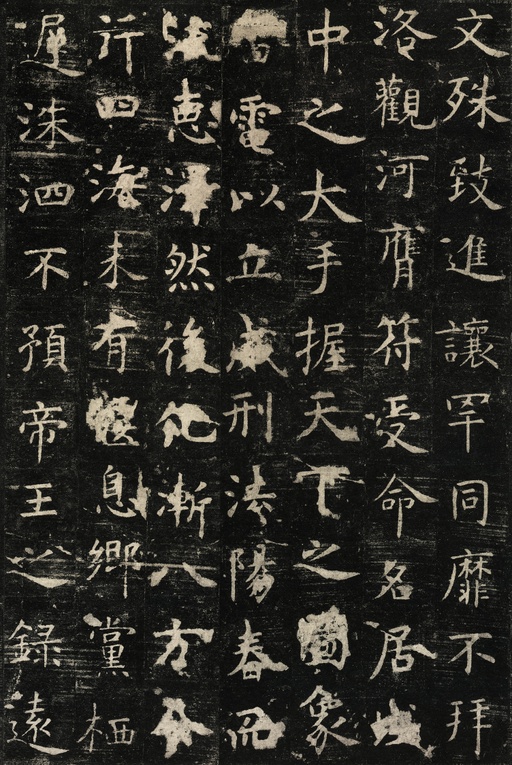 文殊致進讓罕同靡不拜
洛觀河膺符受命名居域
中之大手握天下之圖象
雷電以立威刑法陽春而
流恵澤然後化漸八方令
行四海未有偃息鄉黨栖
遲洙泗不預帝王之錄遠